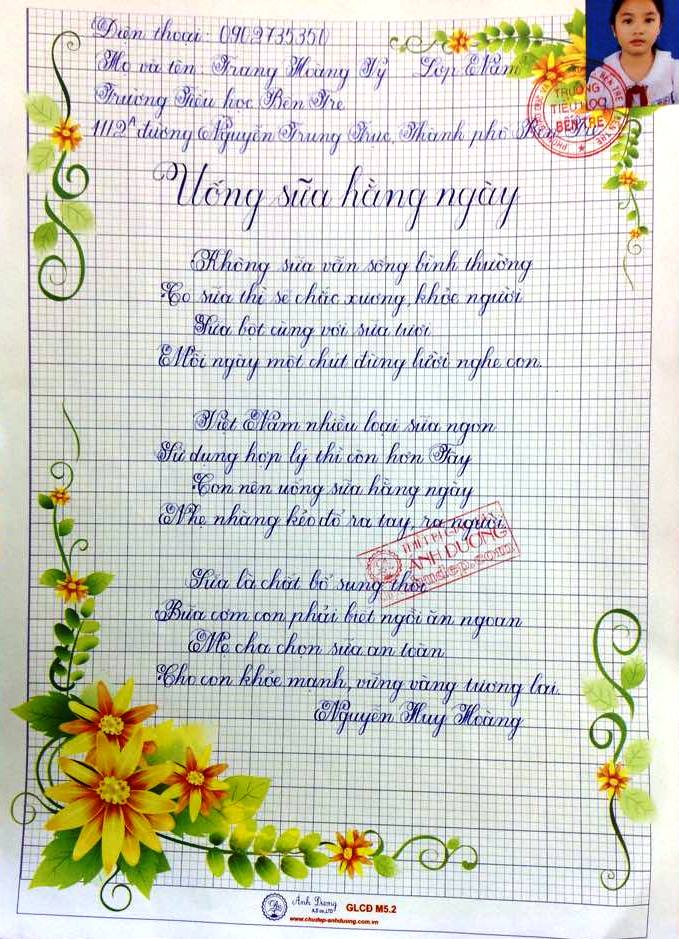 Điện thoại: 0902735350
Họ và tên: Trang Hoàng Tỷ Lớp Năm
Trường Tiểu học Bến Tre
1112A đường Nguyễn Trung Trực, Thành phố Bến Tre
TRƯỜNG
TIỂU HỌC
BẾN TRE
Uống sữa hằng ngày
Không sữa vẫn sống bình thường
Có sữa thì sẽ chắc xương, khỏe người
Sữa bột cùng với sữa tươi
Mỗi ngày một chút đừng lười nghe con.
Việt Nam nhiều loại sữa ngon
Sử dụng hợp lý thì còn hơn Tây
Con nên uống sữa hằng ngày
Nhẹ nhàng kẻo đổ ra tay, ra người.
ÁNH DƯƠNG
Sữa là chất bổ sung thôi
Bữa cơm con phải biết ngồi ăn ngoan
Mẹ cha chọn sữa an toàn
Cho con khỏe mạnh, vững vàng tương lai.
Nguyễn Huy Hoàng
Ánh Dương
A.D co.,LTD
GLCĐ M5.2
www.chudep-anhduong.com.vn